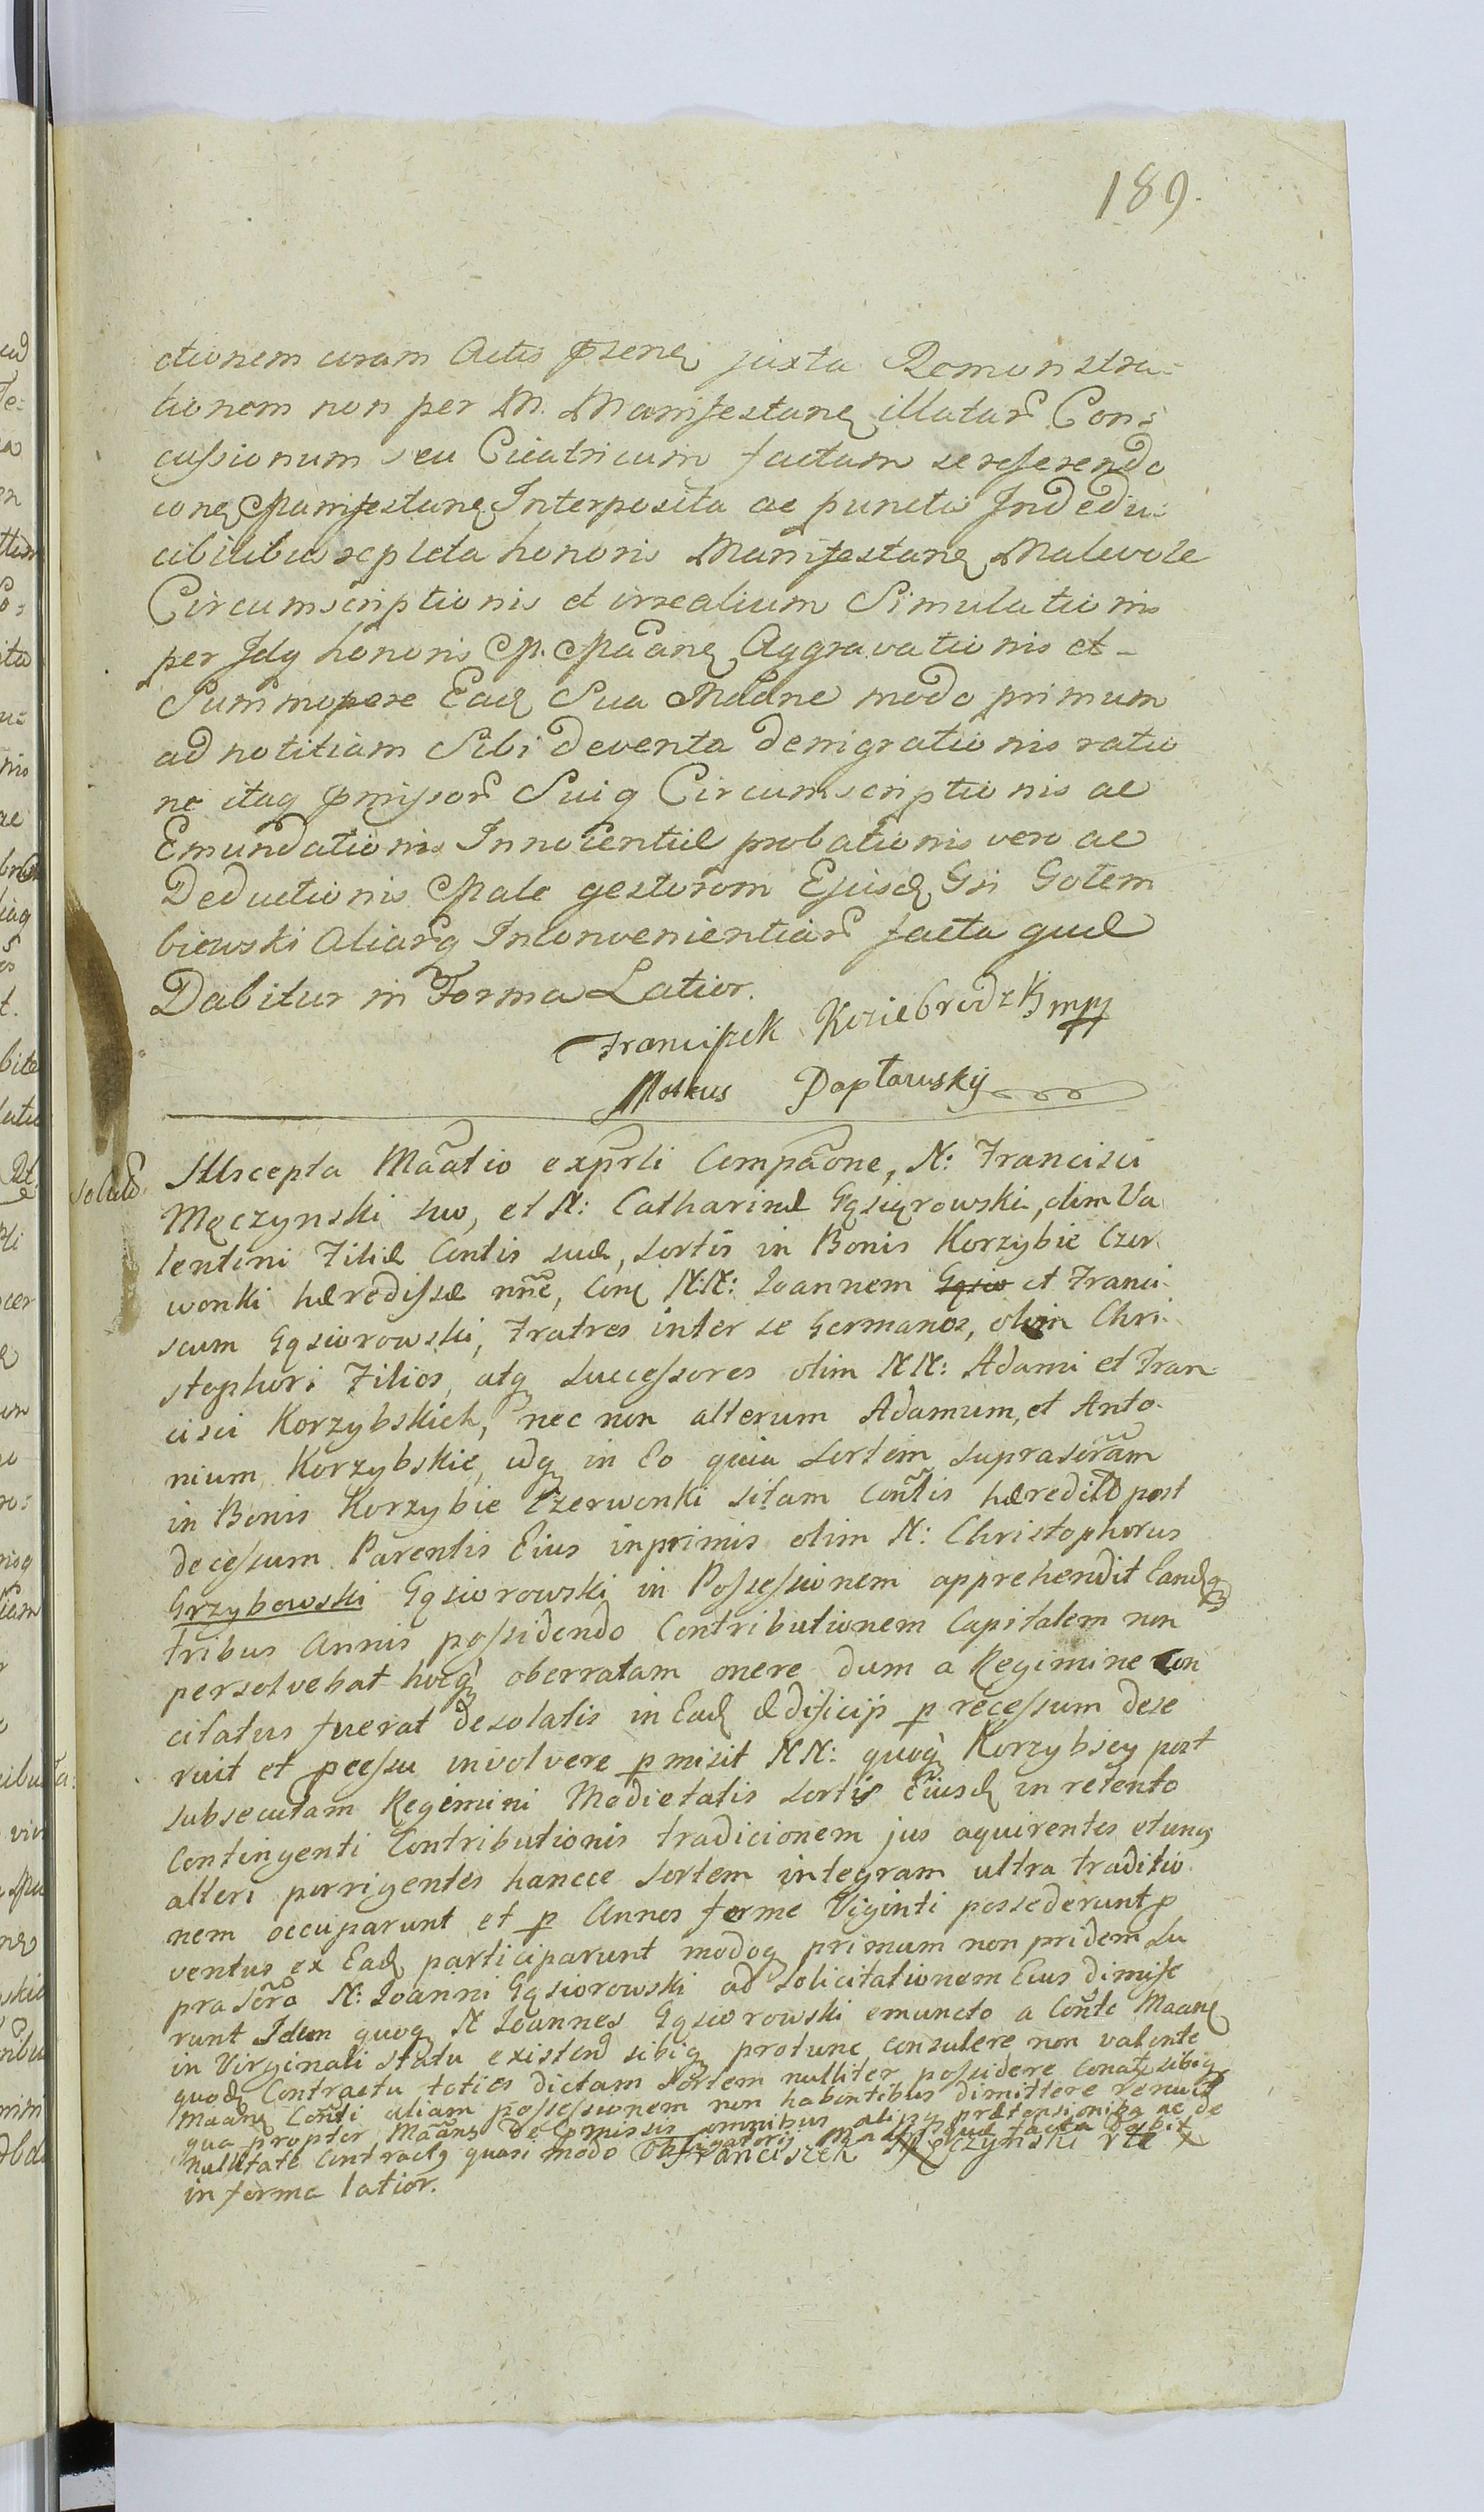 189.
ctionem coram Actis pṡenẹ juxta Remonstra-
tionem non per M. Manifestanẹ illatar̃ Con=
cussionum seu Cicatricum factam se referendo
conẹ Manifestanẹ Interposita ac puncta Indedu=
cibilibus repleta honoris Manifestanẹ Malevole
Circumscriptionis et irrealium Simulationis
per Idq honoris M. Mãanẹ Aggravationis et -
Summopere Eadẹ Sua Mãane modo primum
ad notitiam Sibi deventa denigrationis ratio
ne itaq pmissor̃ Suiq Circumscriptionis ac
Emundationis Innocentiæ probationis vero ac
Deductionis Male gestorom Ejusdẹ Gsi Gotem
biewski Aliar̃q Inconvenientiar̃ facta quæ
Dabitur in Forma Latior.
Franciszek Koziebrodzki mpp
Matheus Daptawskÿ
solut
Suscepta Mãatio exprli Compãone, N: Francisci
Męczynski suo, et N: Catharinæ Gąsiorowski, olim Va
lentini Filiæ Contis suæ, sortis in Bonis Korzybie Czer
wonki hæredissæ nñe, Conẹ N:N: Joannem Gąsio et Franci
scum Gąsiorowski, Fratres inter se Germanos, olim Chri-
stophori Filios, atq successores olim NN: Adami et Fran-
cisci Korzybskich, nec non alterum Adamum, et Anto-
nium Korzybskie, idq in Eo quia sortem suprascr̃am
in Bonis Korzybie Czerwonki sitam Cont̃is hæredit post
decessum Parentis Eius inprimis olim N: Christophorus
Grzybowski Gąsiorowski in Possessionem apprehendit Eandẹq
tribus Annis possidendo Contributionem Capitalem non
persolvebat hocq̀ oberratam onere dum a Regimine Con
citatus fuerat desolatis in Eadẹ ædificijs p recessum dese
ruit et peessu involvere pmisit NN: quoq̀ Korzybscy post
subsecutam Regimini Medietatis sortis Eiusdẹ in retento
Contingenti Contributionis tradicionem jus aquirentes et unq
alteri porrigentes hancce sortem integram ultra traditio
nem occuparunt et p Annos ferme Viginti possederunt p
ventus ex Eadẹ participarunt modoq primum non pridem Su
prascr̃o N: Joanni Gąsiorowski ad solicitationem Eius dimise
runt Idem quoq N Joannes Gąsiorowski emuncto a Cont̃e Mãanẹ
in Virginali statu existend sibiq protunc consulere non valente
quodẹ Contractu toties dictam sortem nulliter possidere conat sibiq
Mãanẹ Cont̃i aliam possessionem non habentibus dimittere renuit
qua propter Mãans de pmissis omnibus alijsq prætensionibq ac de
nullitate Contractq quasi modo Obligatorij Maatio quæ facta Dabit
Franciszek Męczynski rte X
in forma latior.